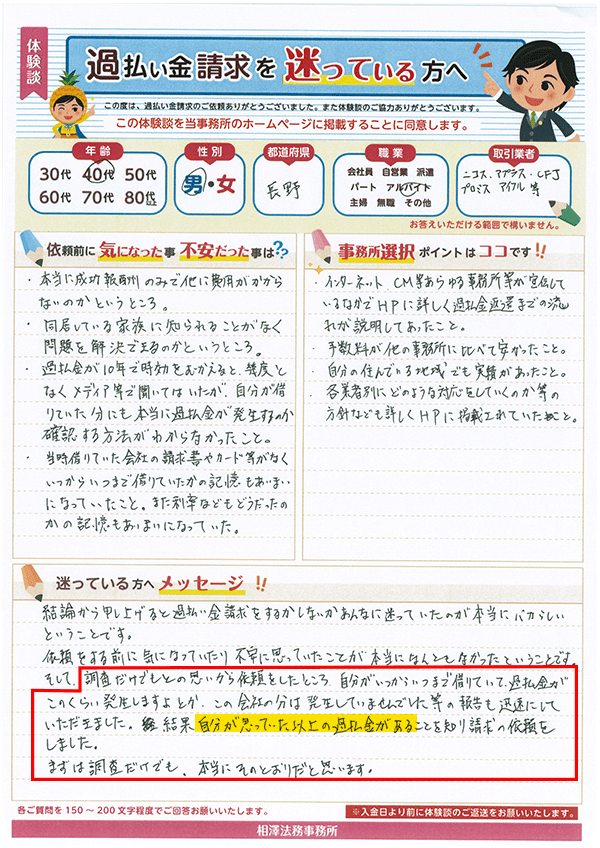 体験談
過払い金請求を迷っている方へ
この度は、過払い金請求のご依頼ありがとうございました。また体験談のご協力ありがとうございます。
この体験談を当事務所のホームページに掲載することに同意します。
年齢
30代 40代 50代
60代 70代 80代以上
性別
男・女
都道府県
長野
職業
会社員 自営業 派遣
パート アルバイト
主婦 無職 その他
取引業者
ニコス、アプラス、CFJ
プロミス アイフル 等
お答えいただける範囲で構いません。
依頼前に気になった事 不安だった事は??
・本当に成功報酬のみで他に費用がかから
ないのかというところ。
・同居している家族に知られることがなく
問題を解決できるのかというところ。
・過払金が10年で時効をむかえると、幾度と
なくメディア等で聞いてはいたが、自分が借
りていた分にも本当に過払金が発生するのか
確認する方法がわからなかったこと。
・当時借りていた会社の請求書やカード等がなく
いつからいつまで借りていたかの記憶もあいまい
になっていたこと。また利率などもどうだったの
かの記憶もあいまいになっていた。
事務所選択ポイントはココです!!
・インターネット、CM等あらゆる事務所等が宣伝して
いるなかでHPに詳しく過払金返還までの流
れが説明してあったこと。
・手数料が他の事務所に比べて安かったこと。
・自分の住んでいる地域でも実績があったこと。
・各業者別にどのような対応をしていくのか等の
方針なども詳しくHPに掲載されていたこと。
迷っている方へメッセージ!!
結論から申し上げると過払い金請求をするかしないかあんなに迷っていたのが本当にバカらしい
ということです。
依頼をする前に気になっていたり不安に思っていたことが本当になんともなかったということです。
そして、調査だけでもとの思いから依頼をしたところ、自分がいつからいつまで借りていて、過払金が
このくらい発生しますよとか、この会社の分は発生していませんでした等の報告も迅速にして
いただきました。結果自分が思っていた以上の過払金があることを知り請求の依頼を
しました。
まずは調査だけでも、本当にそのとおりだと思います。
各ご質問を150〜200文字程度でご回答お願いいたします。
※入金日より前に体験談のご返送をお願いいたします。
相澤法務事務所